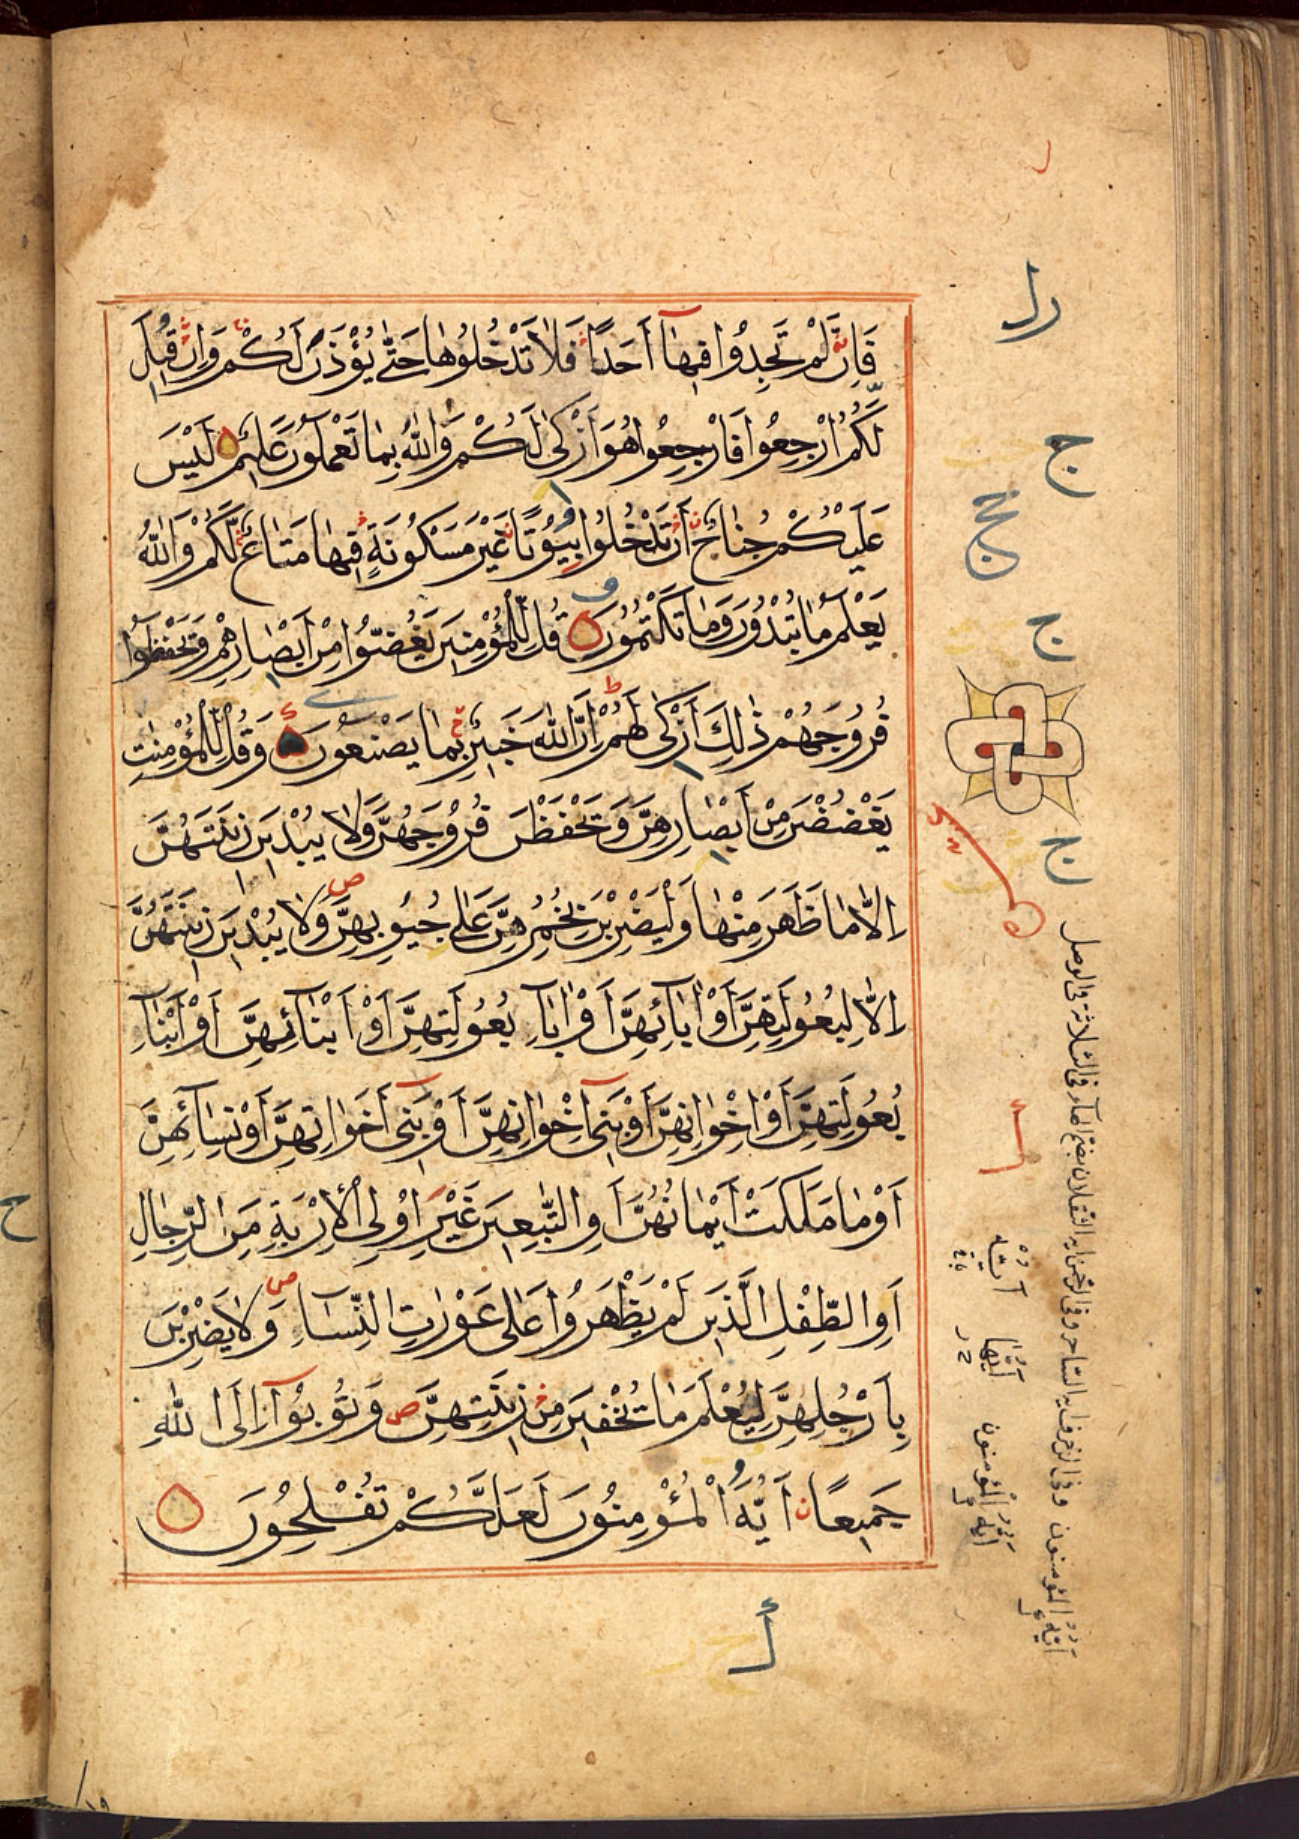 فَاِنْ لَمْ تَجِدُوا فِيهَا اَحَدًا فَلَا تَدْخُلُوهَا حَتّٰى يُؤْذَنَ لَكُمْ وَاِنْ قِيلَ
لَكُمُ ارْجِعُوا فَارْجِعُوا هُوَ اَزْكٰى لَكُمْ وَاللّٰهُ بِمَا تَعْمَلُونَ عَلِيمٌ لَيْسَ
عَلَيْكُمْ جُنَاحٌ اَنْ تَدْخُلُوا بُيُوتًا غَيْرَ مَسْكُونَةٍ فِيهَا مَتَاعٌ لَّكُمْ وَاللّٰهُ
يَعْلَمُ مَا تُبْدُونَ وَمَا تَكْتُمُونَ قُلْ لِّلْمُؤْمِنِينَ يَغُضُّوا مِنْ اَبْصَارِهِمْ وَيَحْفَظُوا
فُرُوجَهُمْ ذٰلِكَ اَزْكٰى لَهُمْ اِنَّ اللّٰهَ خَبِيرٌ بِمَا يَصْنَعُونَ وَقُلْ لِّلْمُؤْمِنٰتِ
يَغْضُضْنَ مِنْ اَبْصَارِهِنَّ وَيَحْفَظْنَ فُرُوجَهُنَّ وَلَا يُبْدِينَ زِينَتَهُنَّ
اِلَّا مَا ظَهَرَ مِنْهَا وَلْيَضْرِبْنَ بِخُمُرِهِنَّ عَلٰى جُيُوبِهِنَّ وَلَا يُبْدِينَ زِينَتَهُنَّ
اِلَّا لِبُعُولَتِهِنَّ اَوْ اٰبَآئِهِنَّ اَوْ اٰبَآءِ بُعُولَتِهِنَّ اَوْ اَبْنَآئِهِنَّ اَوْ اَبْنَآءِ
بُعُولَتِهِنَّ اَوْ اِخْوَانِهِنَّ اَوْ بَنِى اِخْوَانِهِنَّ اَوْ بَنِى اَخَوَاتِهِنَّ اَوْ نِسَآئِهِنَّ
اَوْ مَا مَلَكَتْ اَيْمَانُهُنَّ اَوِ التّٰبِعِينَ غَيْرِ اُولِى الْاِرْبَةِ مِنَ الرِّجَالِ
اَوِ الطِّفْلِ الَّذِينَ لَمْ يَظْهَرُوا عَلٰى عَوْرٰتِ النِّسَاءِ وَلَا يَضْرِبْنَ
بِاَرْجُلِهِنَّ لِيُعْلَمَ مَا يُخْفِينَ مِنْ زِينَتِهِنَّ وَتُوبُوا اِلَى اللّٰهِ
جَمِيعًا اَيُّهَ الْمُؤْمِنُونَ لَعَلَّكُمْ تُفْلِحُونَ
ايه المؤمنون وفى الزخرف ايه الساحر وفى الرحمن ايه الثقلان بضم الهاء فى الثلاثة فى الوصل
ايه المؤمنون
ايها